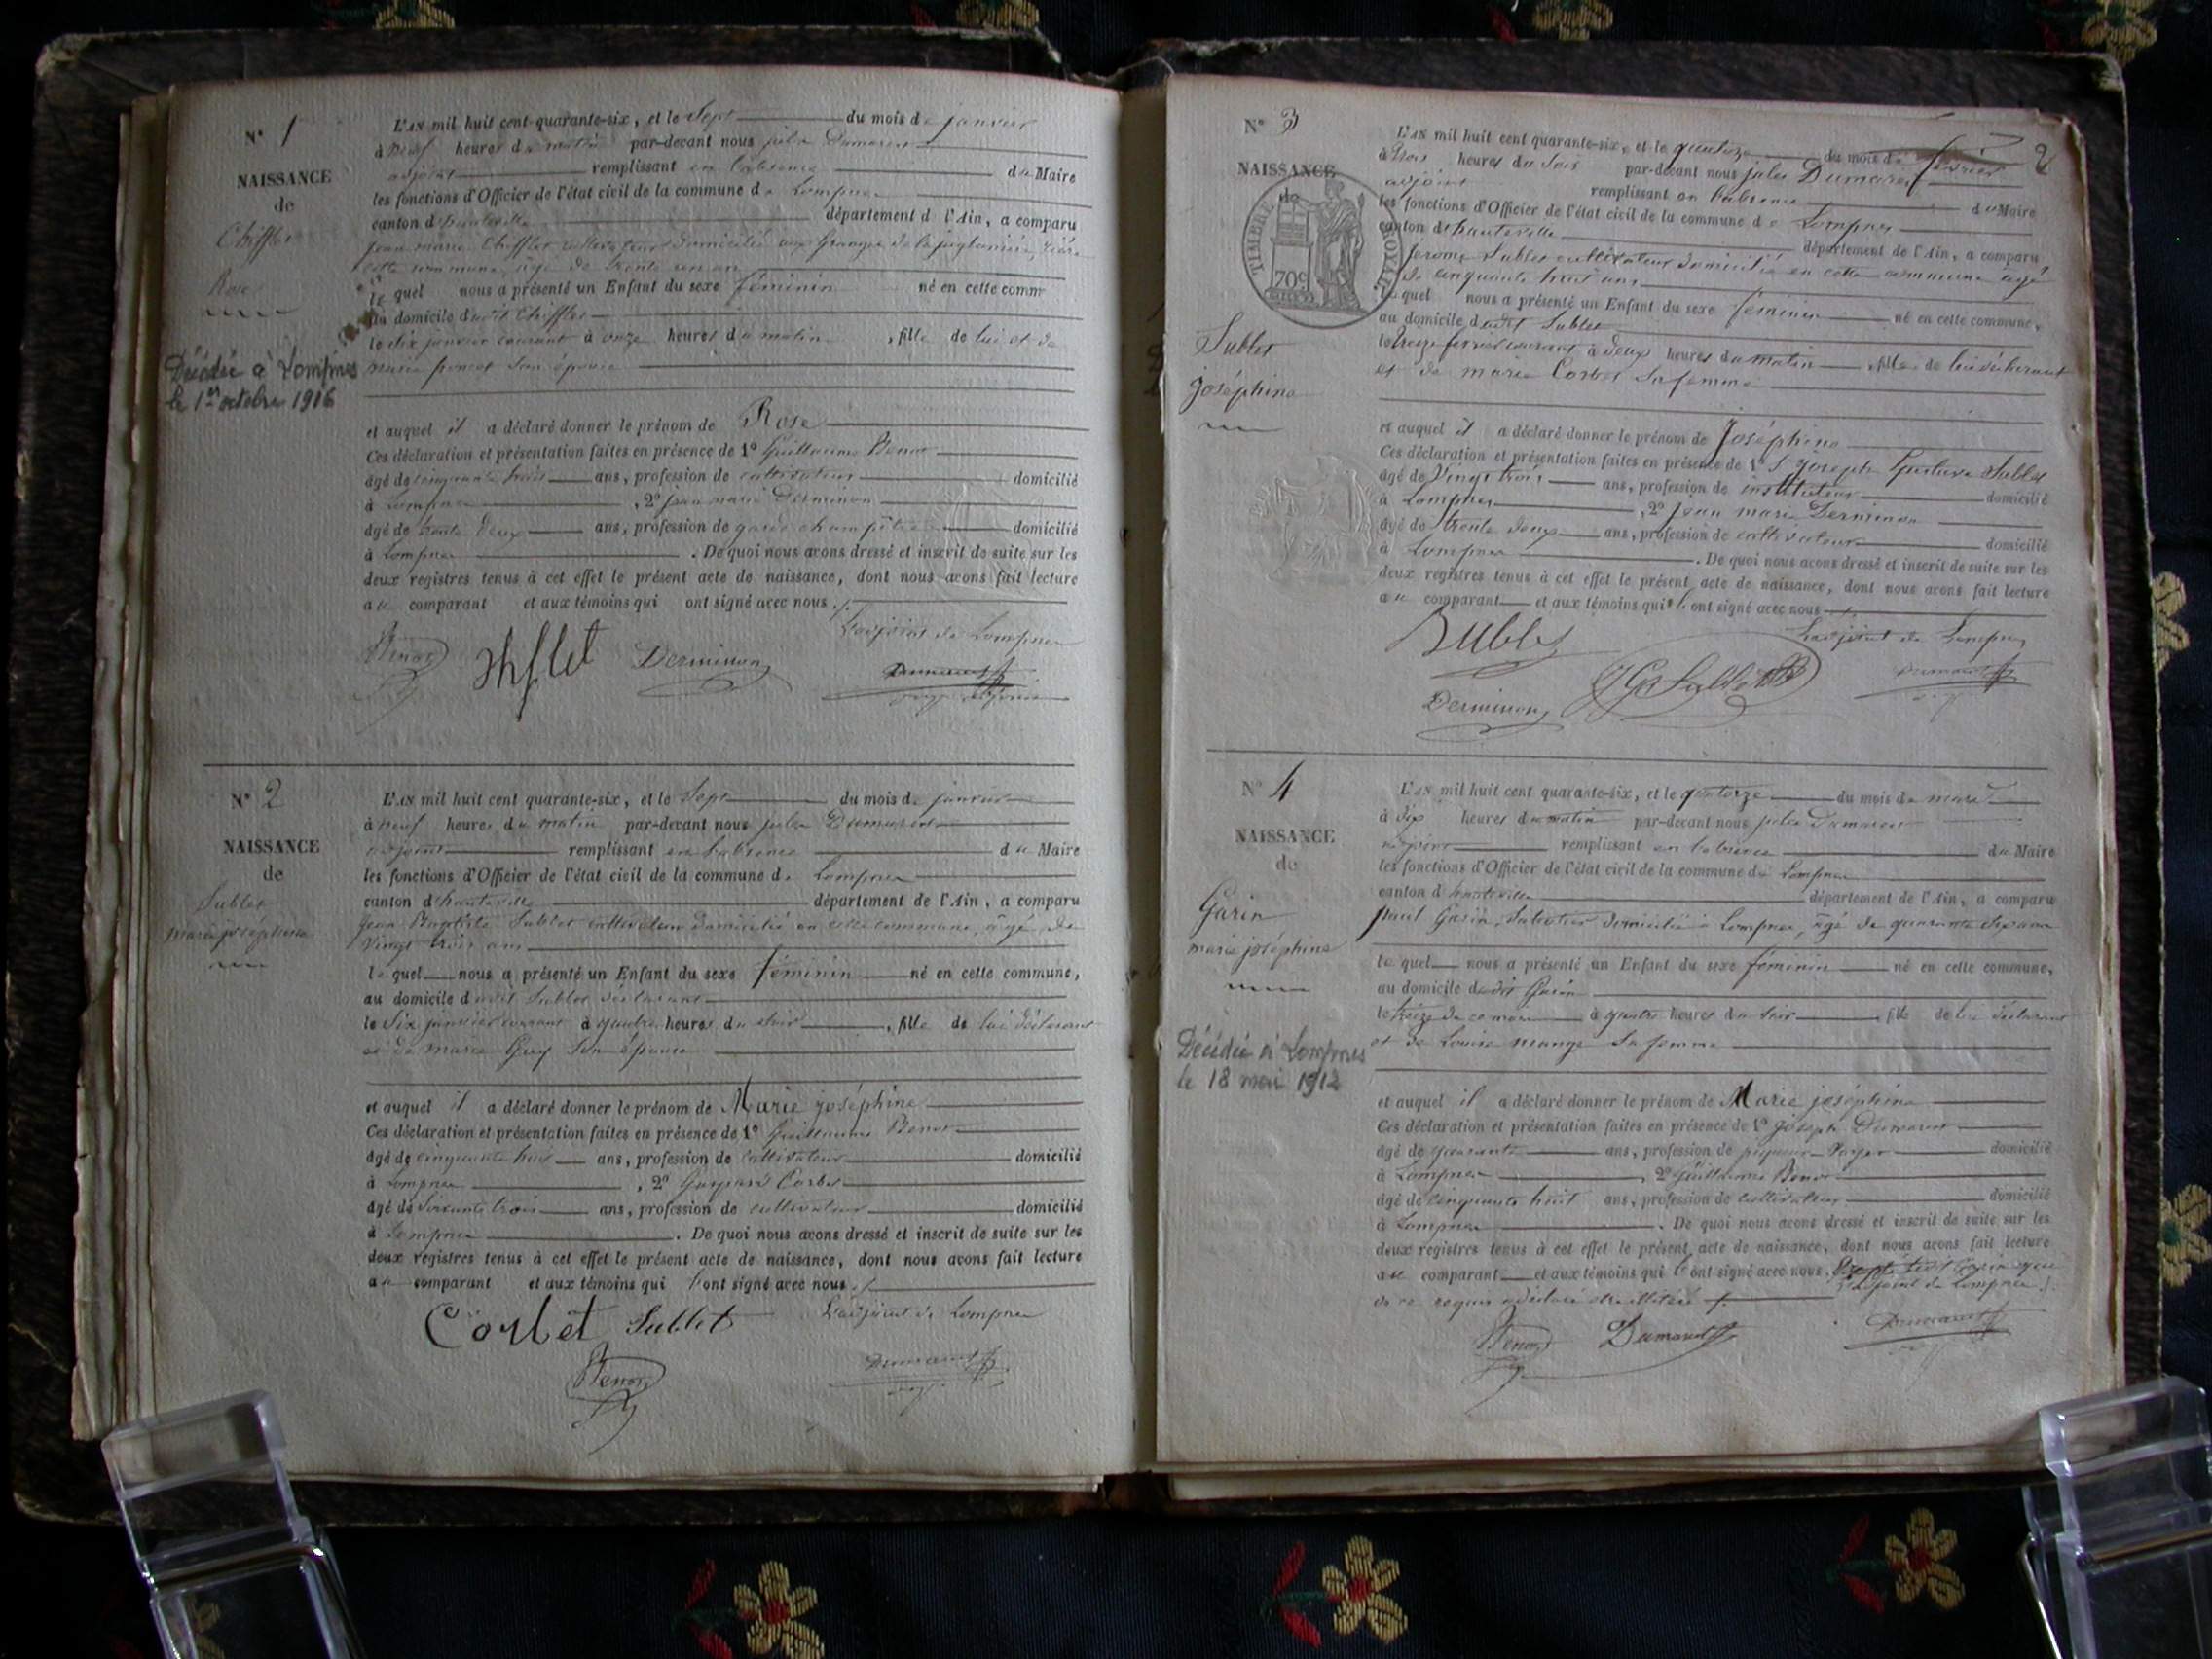 N° 1
NAISSANCE
de
Chifflet
Rose
Décédée à Lompnes
le 1er octobre 1916
L'AN mil huit cent quarante-six, et le Sept du mois de janvier
à neuf heures du matin par-devant nous jules Dumarest
adjoint remplissant en l'absence du Maire
les fonctions d'Officier de l'état civil de la commune de Lompnes
canton d'hauteville département de l'Ain, a comparu
jean marie Chifflet cultivateur domicilié aux Granges
cette commune, âgé de trente un ans
le quel nous a présenté un Enfant du sexe féminin né en cette comm
au domicile dudit Chifflet
le six janvier courant à onze heures du matin, fille de lui et de
marie poncet son épouse
et auquel il a déclaré donner le prénom de Rose
Ces déclaration et présentation faites en présence de 1° Guillaume Benot
âgé de cinquante huit ans, profession de cultivateur domicilié
à Lompnes, 2° jean marie Derminon
âgé de trente deux ans, profession de garde champêtre domicilié
à Lompnes. De quoi nous avons dressé et inscrit de suite sur les
deux registres tenus à cet effet le présent acte de naissance, dont nous avons fait lecture
au comparant et aux témoins qui ont signé avec nous ./.
L'adjoint de Lompnes
Benot Chiflet Derminon Dumarest
N° 2
NAISSANCE
de
Sublet
marie joséphine
L'AN mil huit cent quarante-six, et le Sept du mois de janvier
à neuf heures du matin par-devant nous jules Dumarest
adjoint remplissant en l'absence du Maire
les fonctions d'Officier de l'état civil de la commune de Lompnes
canton d'hauteville département de l'Ain, a comparu
Jean Baptiste Sublet cultivateur domicilié en cette commune, âgé de
Vingt trois ans
le quel nous a présenté un Enfant du sexe féminin né en cette commune,
au domicile dudit Sublet déclarant
le Six janvier courant à quatre heures du soir, fille de lui déclarant
et de marie Guy son épouse
et auquel il a déclaré donner le prénom de Marie joséphine
Ces déclaration et présentation faites en présence de 1° Guillaume Benot
âgé de cinquante huit ans, profession de cultivateur domicilié
à Lompnes, 2° Gaspard Corbet
âgé de Soixante trois ans, profession de cultivateur domicilié
à Lompnes. De quoi nous avons dressé et inscrit de suite sur les
deux registres tenus à cet effet le présent acte de naissance, dont nous avons fait lecture
au comparant et aux témoins qui l'ont signé avec nous ./.
Corbet Sublet L'adjoint de Lompnes
Benot Dumarest
2
N° 3
NAISSANCE
de
TIMBRE ROYAL
70c
Sublet
joséphine
L'AN mil huit cent quarante-six, et le quatorze du mois de février
à trois heures du Soir par-devant nous jules Dumarest
adjoint remplissant en l'absence du Maire
les fonctions d'Officier de l'état civil de la commune de Lompnes
canton d'hauteville département de l'Ain, a comparu
jerome Sublet cultivateur domicilié en cette commune âgé
de cinquante huit ans
le quel nous a présenté un Enfant du sexe féminin né en cette commune,
au domicile dudit Sublet
le treize fevrier courant à deux heures du matin, fille de lui déclarant
et de marie Corbet Sa femme
et auquel il a déclaré donner le prénom de Joséphine
Ces déclaration et présentation faites en présence de 1° S joseph Gustave Sublet
âgé de Vingt trois ans, profession de instituteur domicilié
à Lompnes, 2° jean marie Derminon
âgé de trente deux ans, profession de cultivateur domicilié
à Lompnes. De quoi nous avons dressé et inscrit de suite sur les
deux registres tenus à cet effet le présent acte de naissance, dont nous avons fait lecture
au comparant et aux témoins qui l'ont signé avec nous
Sublet L'adjoint de Lompnes
Derminon JG Sublet Dumarest
N° 4
NAISSANCE
de
Garin
marie joséphine
Décédée à Lompnes
le 18 mai 1912
L'AN mil huit cent quarante-six, et le quatorze du mois de mars
à dix heures du matin par-devant nous jules Dumarest
adjoint remplissant en l'absence du Maire
les fonctions d'Officier de l'état civil de la commune de Lompnes
canton d'hauteville département de l'Ain, a comparu
paul Garin, domicilié à Lompnes, âgé de quarante ans
le quel nous a présenté un Enfant du sexe féminin né en cette commune,
au domicile dudit Garin
le treize de ce mois à quatre heures du Soir, fille de lui déclarant
et de Louise mange Sa femme
et auquel il a déclaré donner le prénom de Marie joséphine
Ces déclaration et présentation faites en présence de 1° joseph Dumarest
âgé de quarante ans, profession de piqueur voyer domicilié
à Lompnes, 2° Guillaume Benot
âgé de cinquante huit ans, profession de cultivateur domicilié
à Lompnes. De quoi nous avons dressé et inscrit de suite sur les
deux registres tenus à cet effet le présent acte de naissance, dont nous avons fait lecture
au comparant et aux témoins qui l'ont signé avec nous.
de ce requis a déclaré être illitéré ./. L'adjoint de Lompnes
Benot Dumarest Dumarest